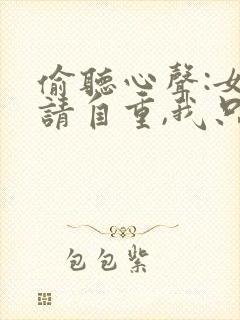 偷聽心聲:女
請自重,我只
包包紫